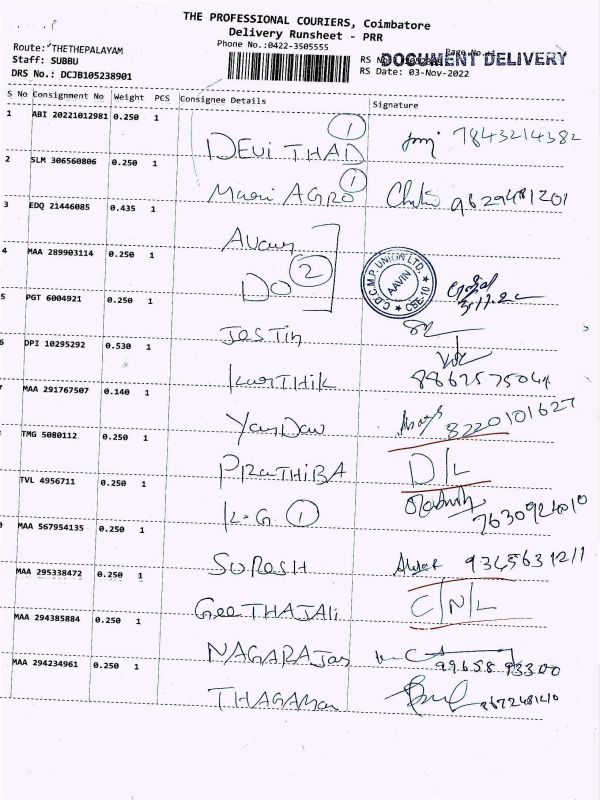 THE PROFESSIONAL COURIERS, Coimbatore
Delivery Runsheet - PRR
Phone No.:0422-3505555
Route: THETHEPALAYAM
Staff: SUBBU
DRS No.: DCJB105238901
DOCUMENT DELIVERY
RS Date: 03-Nov-2022
S No Consignment No Weight PCS Consignee Details Signature
1 ABI 20221012981 0.250 1
DEVI THAD 1 7843214382
2 SLM 306560806 0.250 1
AGRO 1 9629481201
3 EDQ 21446085 0.435 1
4 MAA 289903114 0.250 1
DO 2
C.D.C.M.P. UNION LTD.
AAVIN
CBE-10
5 PGT 6004921 0.250 1
JOSTIN
6 DPI 10295292 0.530 1
KARTHIK
MAA 291767507 0.140 1
8220101627
TMG 5080112 0.250 1
PRATHIBA D/L
TVL 4956711 0.250 1
K-G 1
MAA 567954135 0.250 1
SURESH 9345631211
MAA 295338472 0.250 1
GeeTHAJAli C/N/L
MAA 294385884 0.250 1
NAGARAJan 99658 93300
MAA 294234961 0.250 1